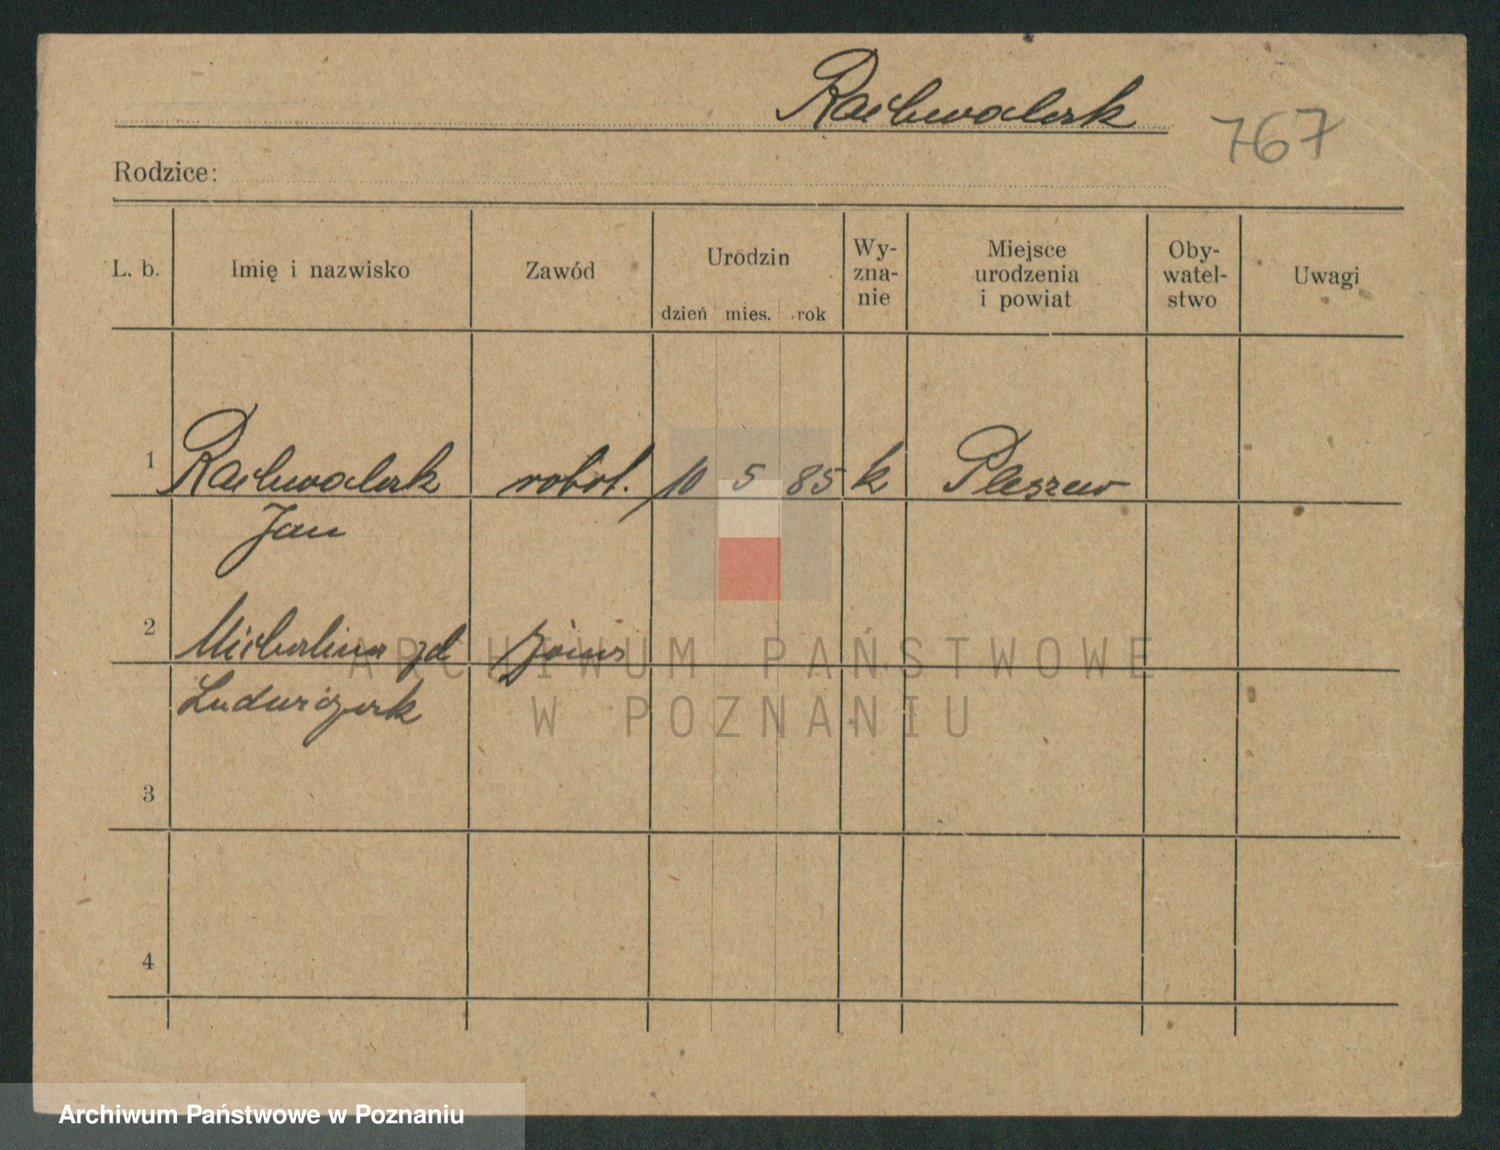 Rachwalak
767
Rodzice:
L. b. Imię i nazwisko Zawód Urodzin Wy-zna-nie Miejsce urodzenia i powiat Oby-watel-stwo Uwagi
dzień mies. rok
1 Rachwalak robot. 10 5 85 k Pleszew
Jan
2 Michalina zd
Ludwiczak
3
4
ARCHIWUM PAŃSTWOWE
W POZNANIU
Archiwum Państwowe w Poznaniu